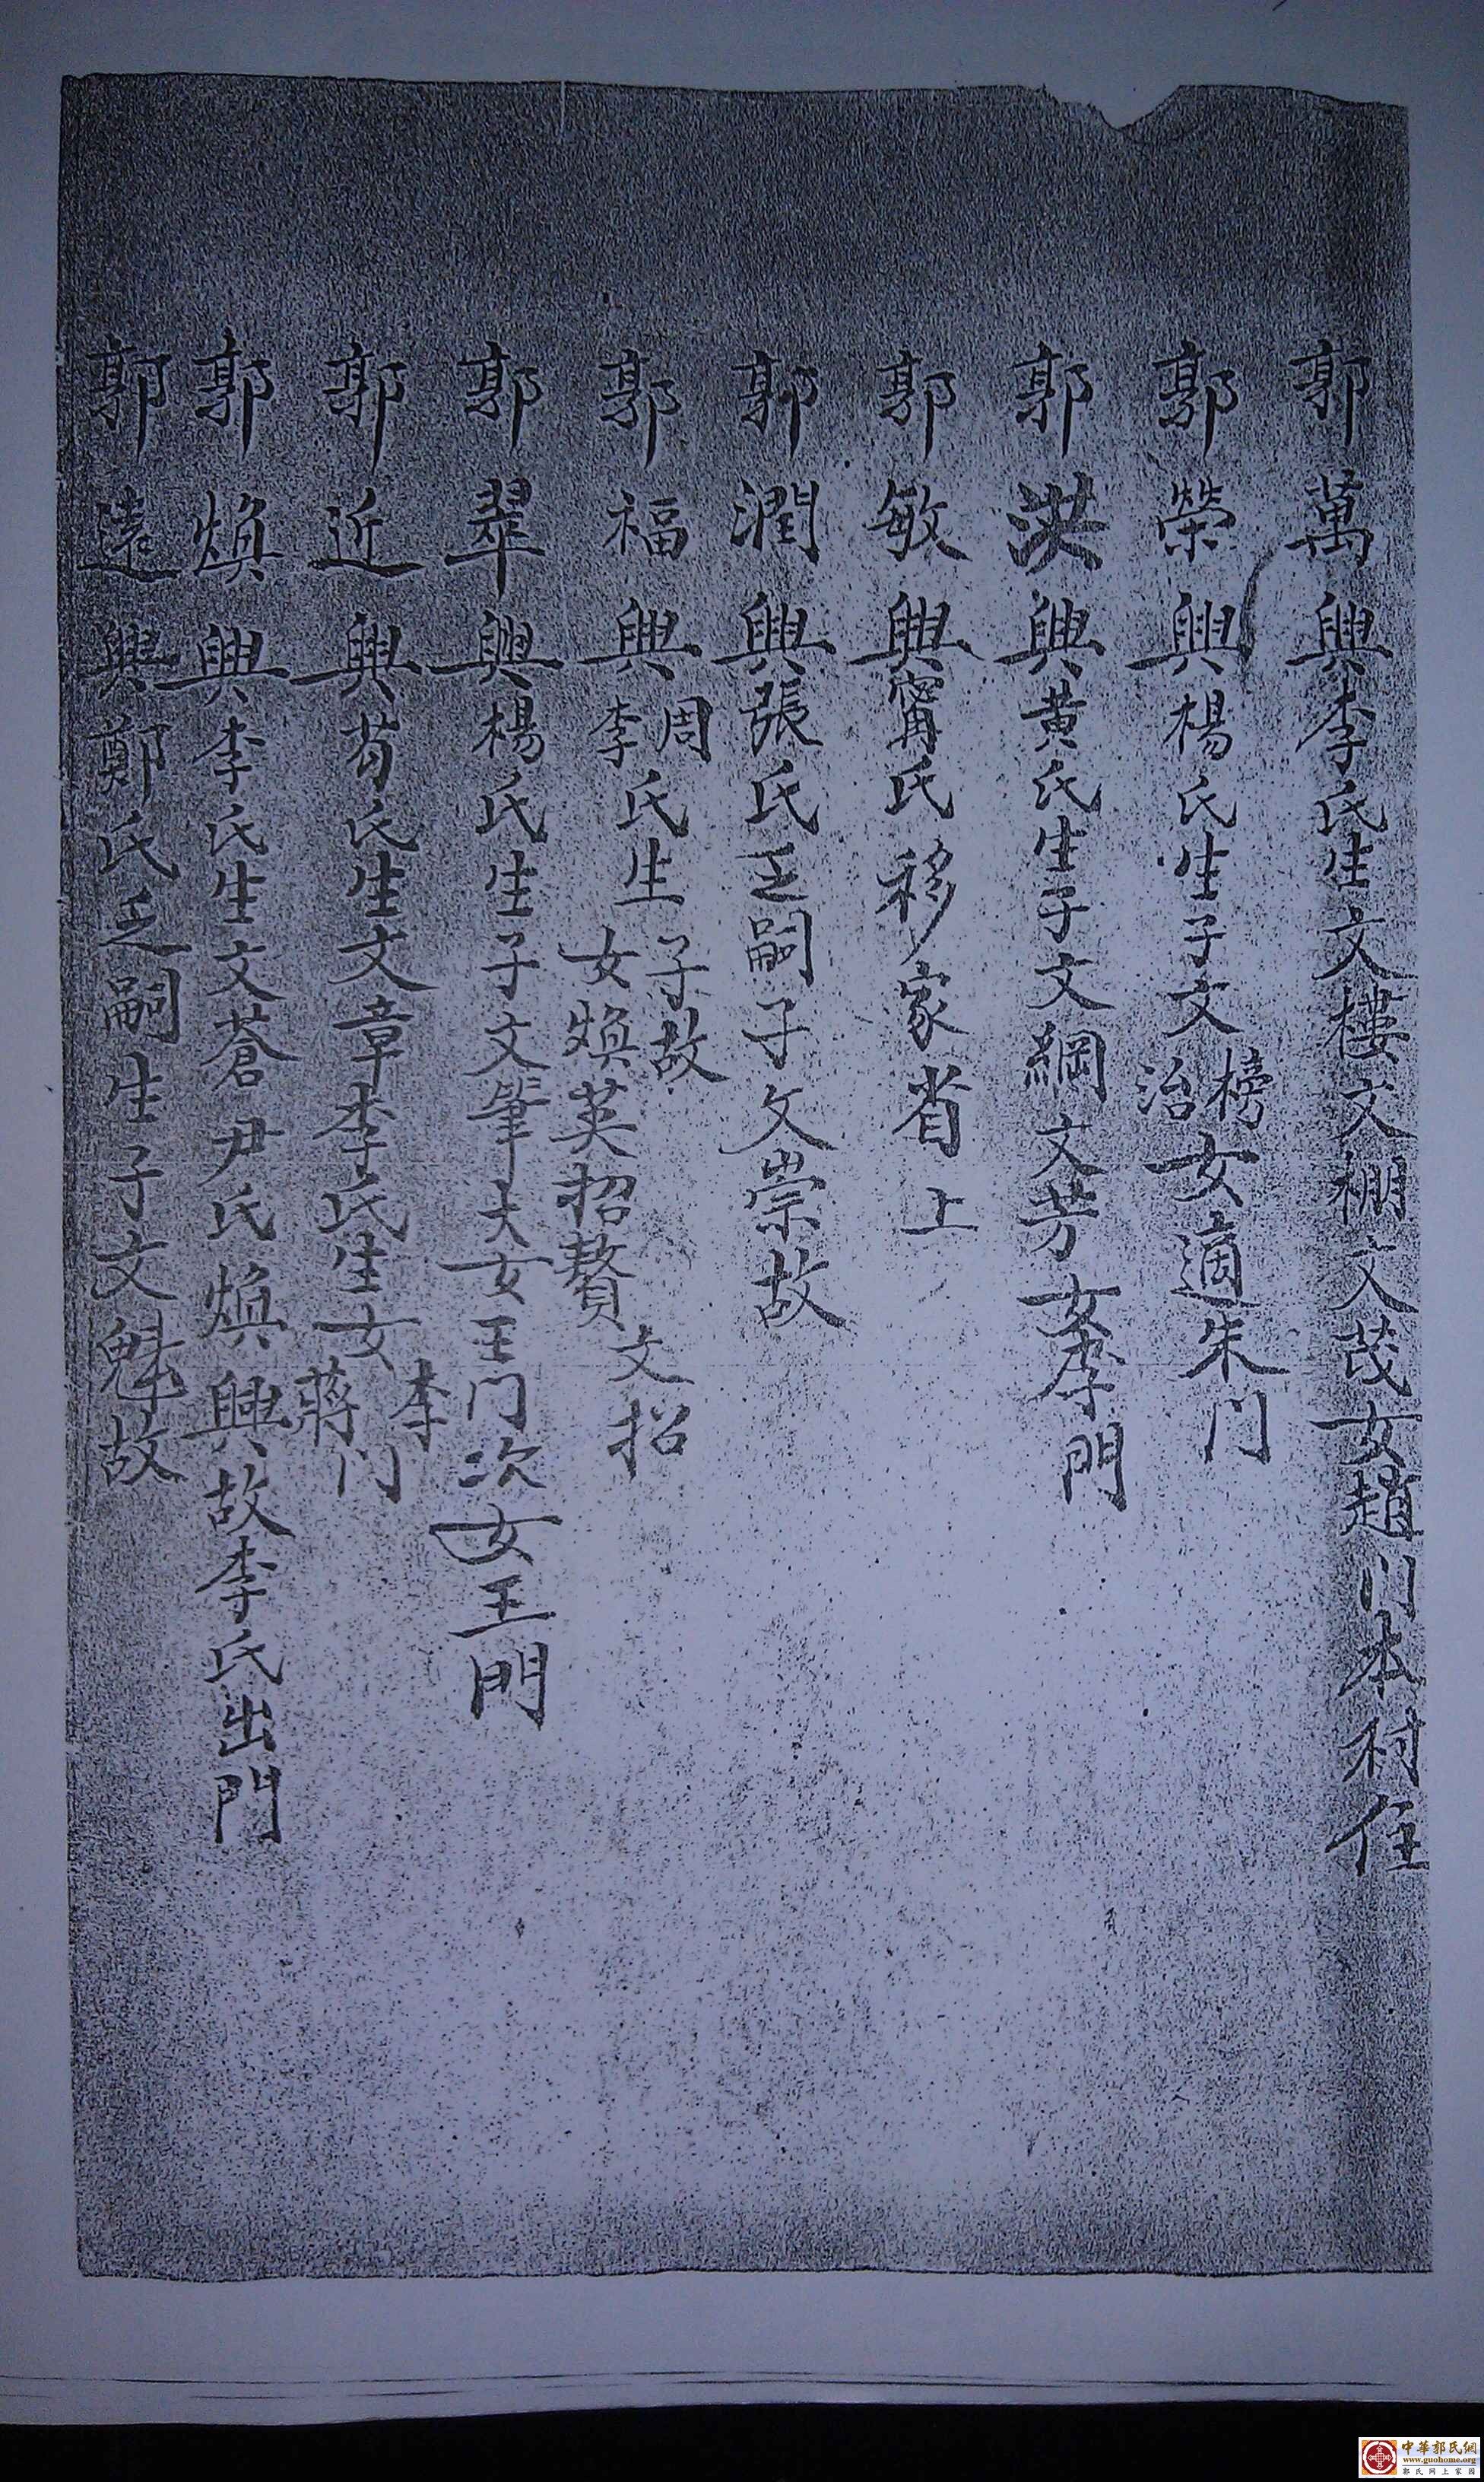 郭萬興李氏生文樓文棚文茂女趙门本村住
郭榮興楊氏生子文榜治女適朱门
郭洪興黄氏生子文綱文芳女李門
郭敏興甯氏移家省上
郭潤興張氏乏嗣子文崇故
郭福興周李氏生子故女焕英招贅文招
郭翠興楊氏生子文筆大女王门次女王門
郭近興苟氏生文章李氏生女李蔣门
郭焕興李氏生文蒼尹氏焕興故李氏出門
郭遠興鄭氏乏嗣生子文魁故
中華郭氏網
www.guohome.org
郭氏网上家园